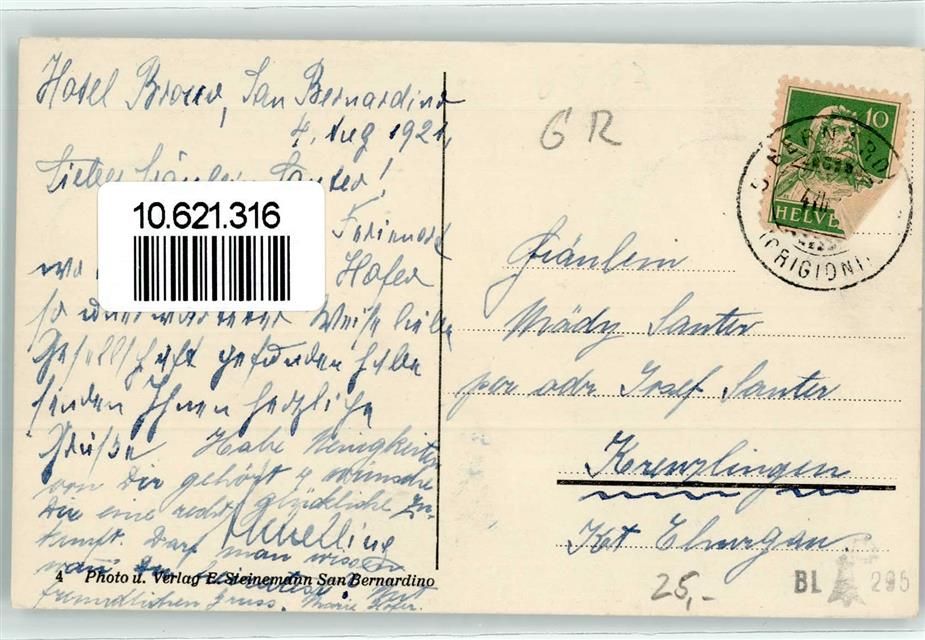 Hotel Brocco, San Bernardino
4. Aug 1921.
Liebes Fräulein Santer!
10.621.316
Ferienort
wo Hofer
so unerwarteter Weise liebe
Gesellschaft gefunden habe
senden Ihnen herzliche
Grüße Habe Neuigkeiten
von Dir gehört & wünsche
Dir eine recht glückliche Zu-
kunft. Darf man wissen
wann
freundlichen Gruss. Marie Hofer.
4 Photo u. Verlag E. Steinemann San Bernardino
GR
10
HELVE
S. BERNARDINO
(GRIGIONI)
Fräulein
Mädy Santer
per adr Josef Santer
Kreuzlingen
Kt Thurgau.
25,-
BL 295